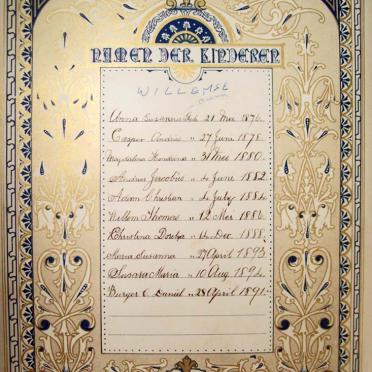 NAMEN DER KINDEREN
WILLEMSE
Anna Susanna 21 Mei 1876.
Casper Andries " 27 June 1878.
Magdalena Hendrina " 31 Mei 1880.
Andries Jacobus " 4 June 1882.
Adam Christian " 4 July 1884.
Willem Thomas " 12 Mar 1886.
Christina Dorthea " 14 Dec. 1888.
Maria Susanna " 27 April 1893
Susara Maria " 10 Aug 1894.
Burger C. Daniel " 28 April 1891.